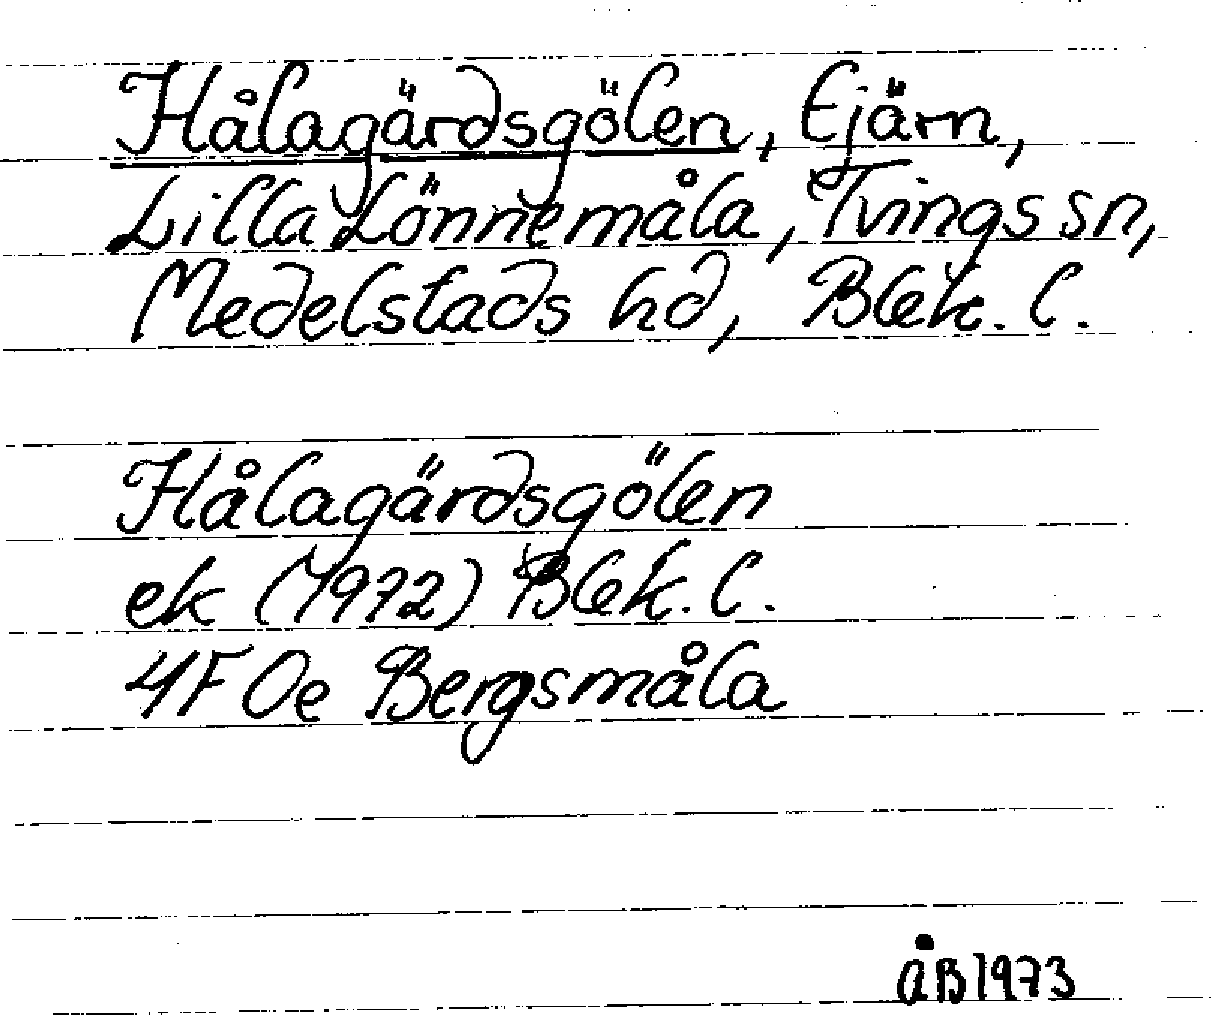 Hålagärdsgölen, tjärn,
Lilla Lönnemåla, Tvings sn,
Medelstads hd, Blek. l.
Hålagärdsgölen
ek (1972) Blek. l.
4F 0e Bergsmåla
ÅB 1973